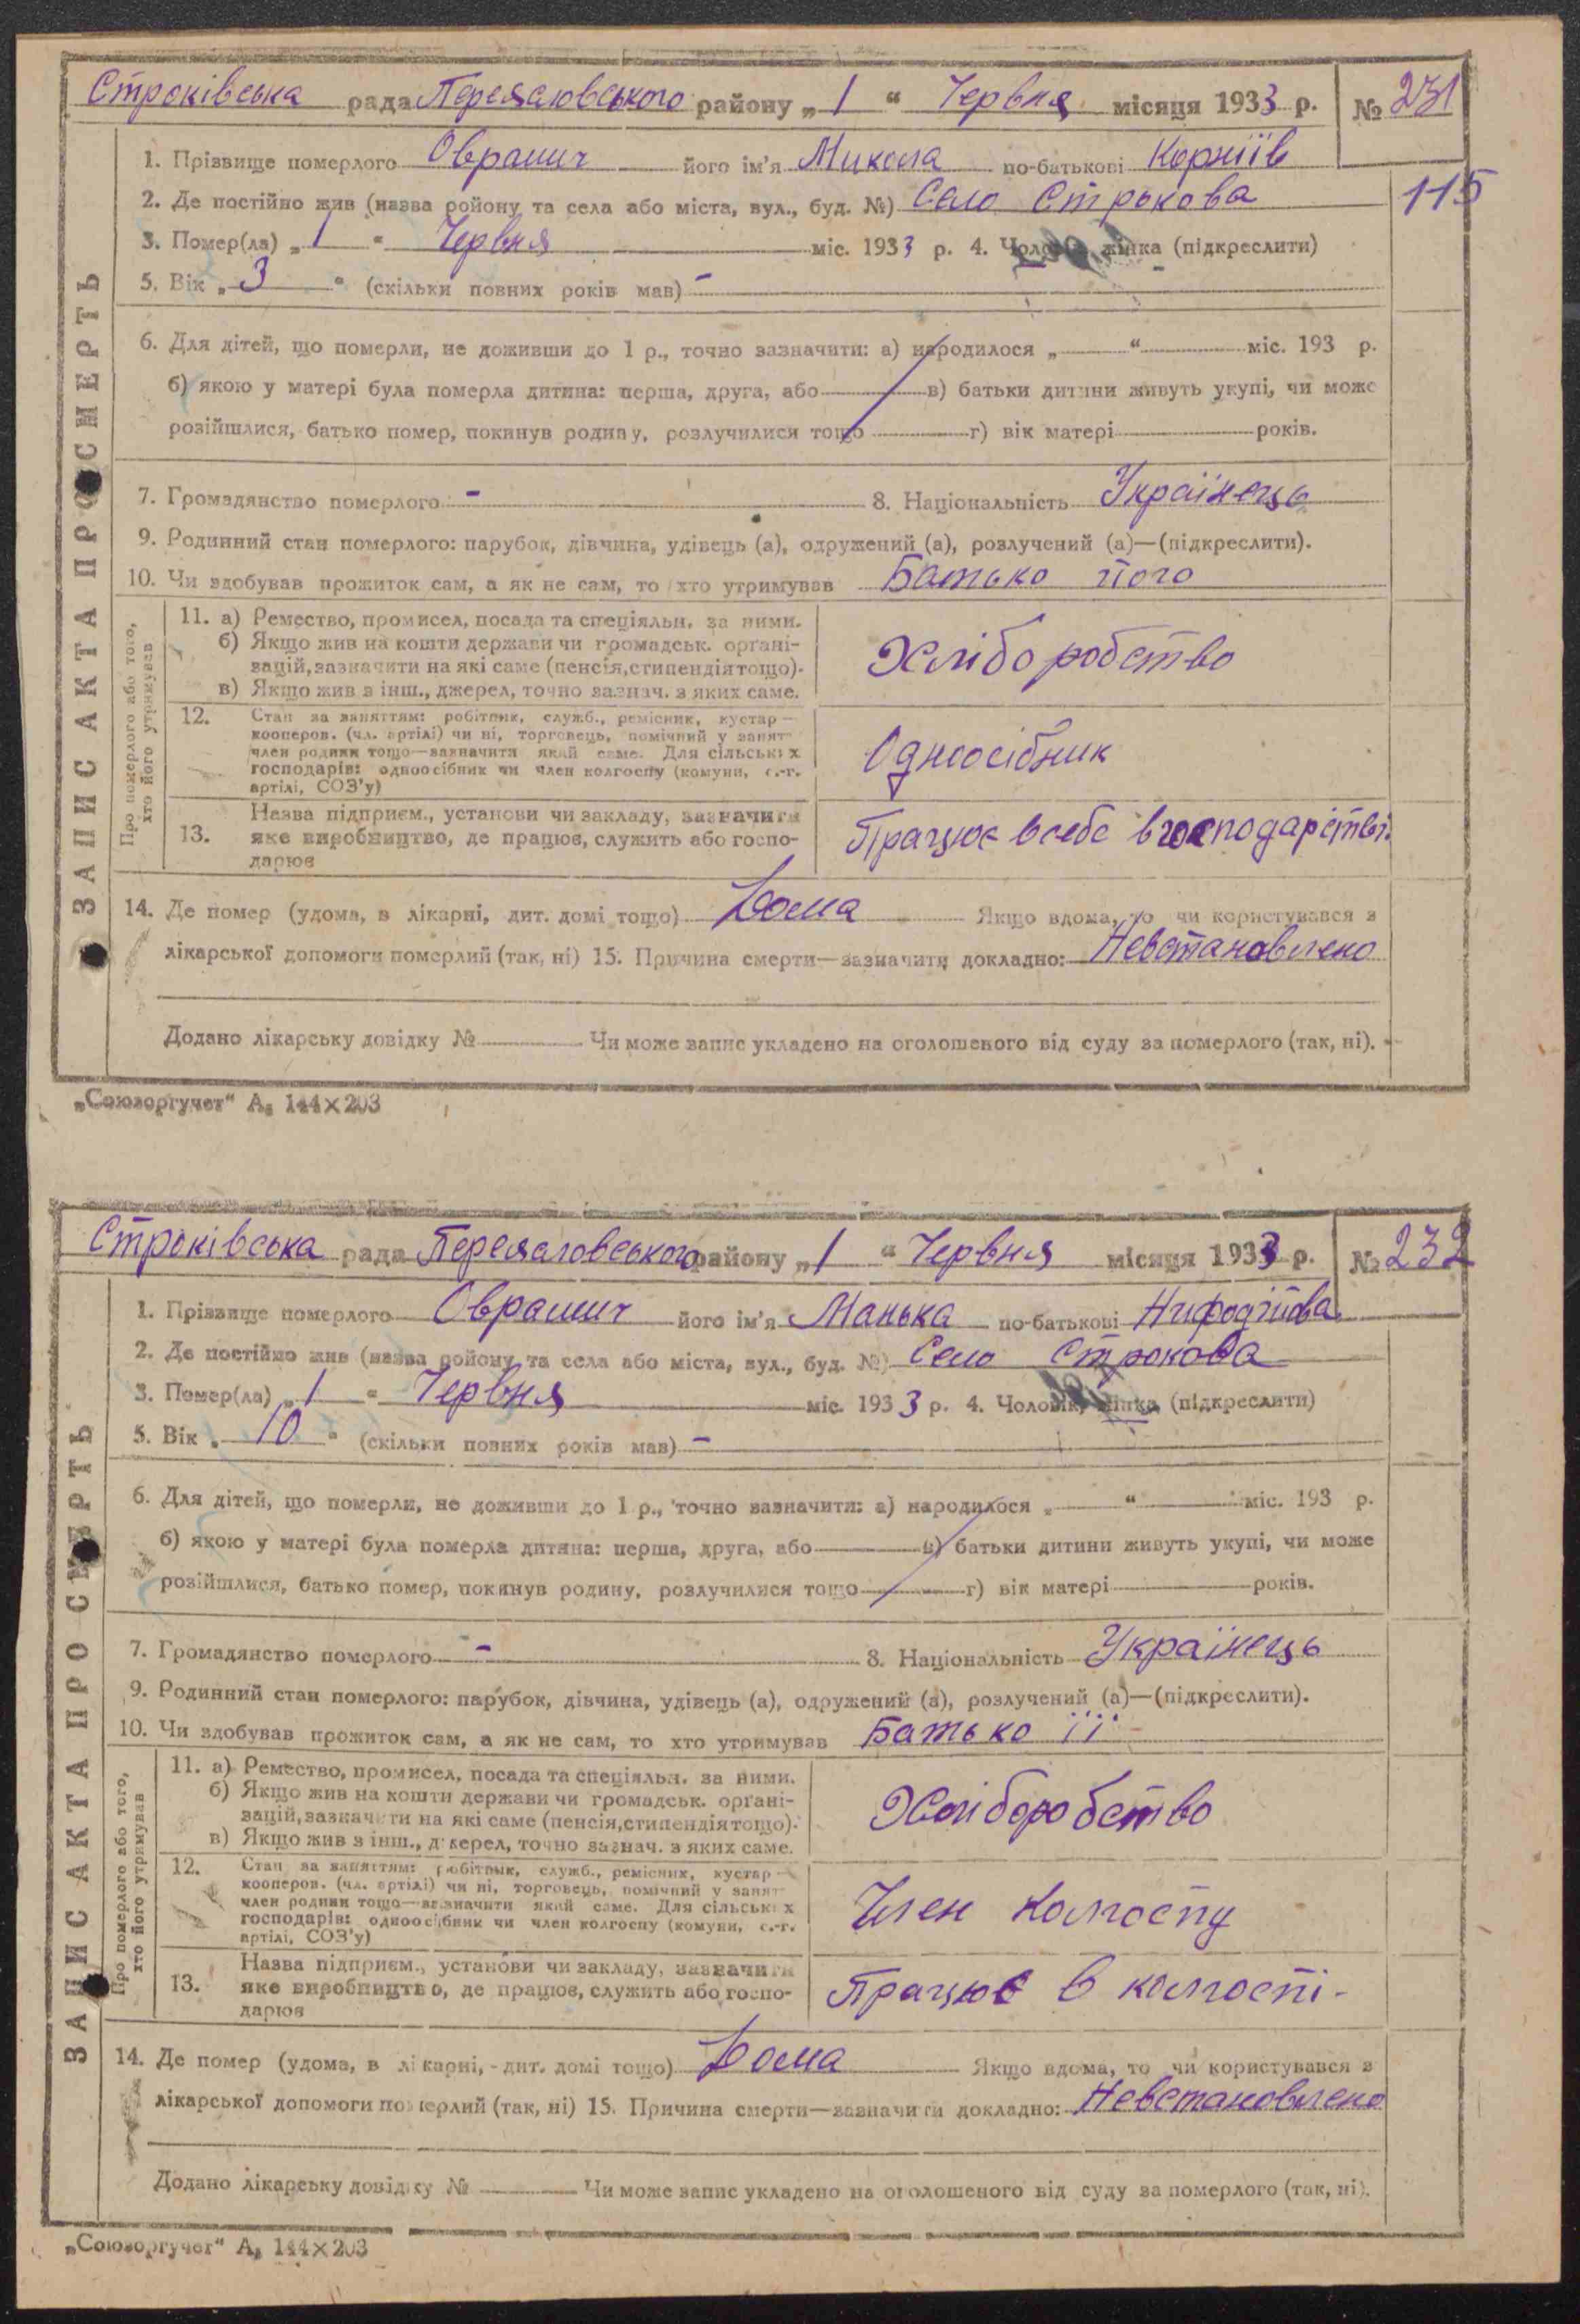 Строківська рада Переяловського району „ 1 “ Червня місяця 1933 р. № 231
1. Прізвище померлого Оврашич його ім'я Микола по-батькові Корніїв
115
2. Де постійно жив (назва ройону та села або міста, вул., буд. №) Село Строкова
3. Помер(ла) „ 1 “ Червня міс. 1933 р. 4. Чоловік, жінка (підкреслити)
5. Вік „ 3 “ (скільки повних років мав) -
6. Для дітей, що померли, не доживши до 1 р., точно зазначити: а) народилося „ “ міс. 193 р.
б) якою у матері була померла дитина: перша, друга, або в) батьки дитини живуть укупі, чи може
розійшлися, батько помер, покинув родину, розлучилися тощо г) вік матері років.
7. Громадянство померлого - 8. Національність Українець
9. Родинний стан померлого: парубок, дівчина, удівець (а), одружений (а), розлучений (а)—(підкреслити).
10. Чи здобував прожиток сам, а як не сам, то хто утримував Батько його
11. а) Ремество, промисел, посада та спеціяльн. за ними.
б) Якщо жив на кошти держави чи громадськ. органі-
зацій, зазначити на які саме (пенсія, стипендія тощо).
в) Якщо жив з інш., джерел, точно зазнач. з яких саме.
Хліборобство
12. Стан за заняттям: робітник, служб., ремісник, кустар—
кооперов. (чл. артілі) чи ні, торговець, помічний у занят
член родини тощо—зазначити який саме. Для сільських
господарів: одноосібник чи член колгоспу (комуни, с.-г.
артілі, СОЗ'у)
Одноосібник
13. Назва підприєм., установи чи закладу, зазначити
яке виробництво, де працює, служить або госпо-
дарює
Працює в себе в господарстві.
Про померлого або того,
хто його утримував
14. Де помер (удома, в лікарні, дит. домі тощо) Дома Якщо вдома, то чи користувався з
лікарської допомоги померлий (так, ні) 15. Причина смерти—зазначити докладно: Невстановлено
Додано лікарську довідку № Чи може запис укладено на оголошеного від суду за померлого (так, ні).
ЗАПИС АКТА ПРО СМЕРТЬ
„Союзоргучет“ А₅ 144×203
Строківська рада Переяловського району „ 1 “ Червня місяця 1933 р. № 232
1. Прізвище померлого Оврашич його ім'я Манька по-батькові Нифодіїва
2. Де постійно жив (назва ройону та села або міста, вул., буд. №) Село Строкова
3. Помер(ла) „ 1 “ Червня міс. 1933 р. 4. Чоловік, жінка (підкреслити)
5. Вік „ 10 “ (скільки повних років мав) -
6. Для дітей, що померли, не доживши до 1 р., точно зазначити: а) народилося „ “ міс. 193 р.
б) якою у матері була померла дитина: перша, друга, або в) батьки дитини живуть укупі, чи може
розійшлися, батько помер, покинув родину, розлучилися тощо г) вік матері років.
7. Громадянство померлого - 8. Національність Українець
9. Родинний стан померлого: парубок, дівчина, удівець (а), одружений (а), розлучений (а)—(підкреслити).
10. Чи здобував прожиток сам, а як не сам, то хто утримував Батько її
11. а) Ремество, промисел, посада та спеціяльн. за ними.
б) Якщо жив на кошти держави чи громадськ. органі-
зацій, зазначити на які саме (пенсія, стипендія тощо).
в) Якщо жив з інш., джерел, точно зазнач. з яких саме.
Хліборобство
12. Стан за заняттям: робітник, служб., ремісник, кустар—
кооперов. (чл. артілі) чи ні, торговець, помічний у занят
член родини тощо—зазначити який саме. Для сільських
господарів: одноосібник чи член колгоспу (комуни, с.-г.
артілі, СОЗ'у)
Член колгоспу
13. Назва підприєм., установи чи закладу, зазначити
яке виробництво, де працює, служить або госпо-
дарює
Працює в колгоспі-
Про померлого або того,
хто його утримував
14. Де помер (удома, в лікарні, дит. домі тощо) Дома Якщо вдома, то чи користувався з
лікарської допомоги померлий (так, ні) 15. Причина смерти—зазначити докладно: Невстановлено
Додано лікарську довідку № Чи може запис укладено на оголошеного від суду за померлого (так, ні).
ЗАПИС АКТА ПРО СМЕРТЬ
„Союзоргучет“ А₅ 144×203